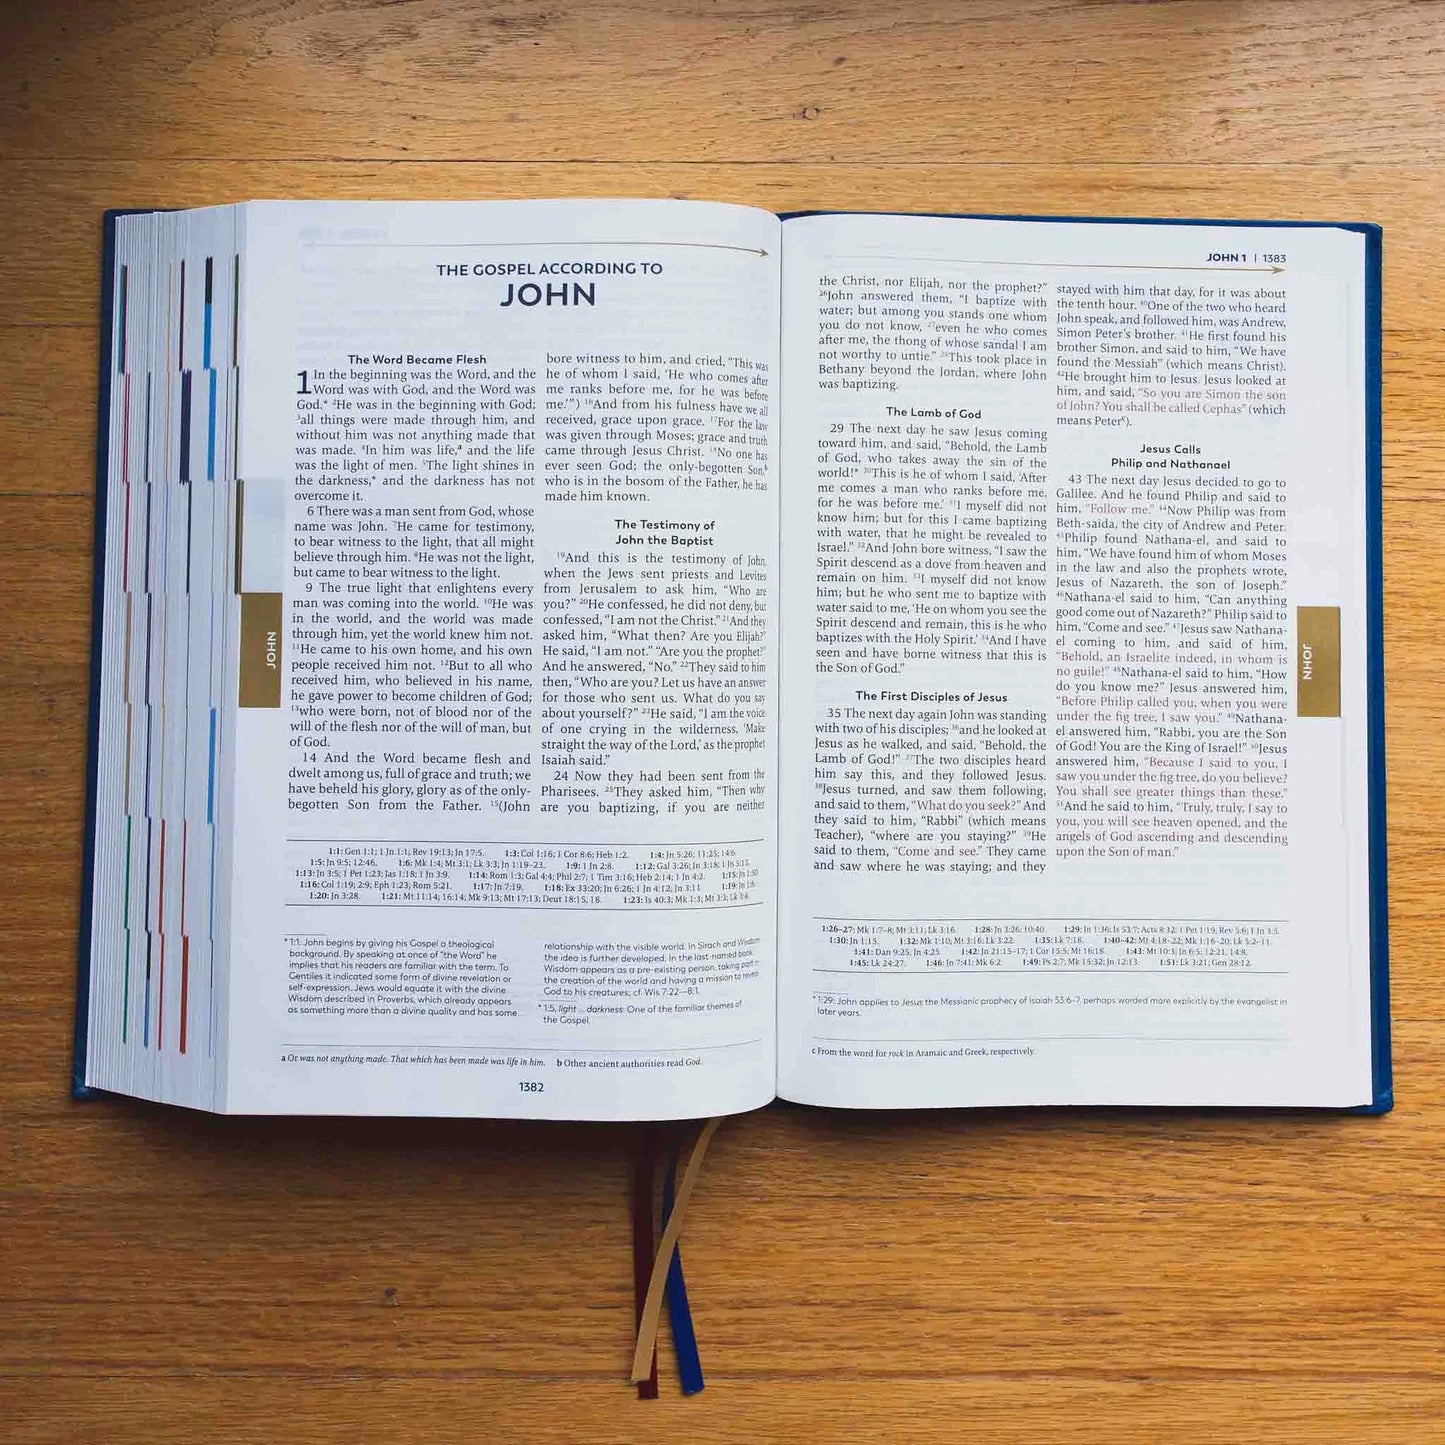 THE GOSPEL ACCORDING TO
JOHN
The Word Became Flesh
1 In the beginning was the Word, and the
Word was with God, and the Word was
God.* ²He was in the beginning with God;
³all things were made through him, and
without him was not anything made that
was made. ⁴In him was life,ᵃ and the life
was the light of men. ⁵The light shines in
the darkness,* and the darkness has not
overcome it.
6 There was a man sent from God, whose
name was John. ⁷He came for testimony,
to bear witness to the light, that all might
believe through him. ⁸He was not the light,
but came to bear witness to the light.
9 The true light that enlightens every
man was coming into the world. ¹⁰He was
in the world, and the world was made
through him, yet the world knew him not.
¹¹He came to his own home, and his own
people received him not. ¹²But to all who
received him, who believed in his name,
he gave power to become children of God;
¹³who were born, not of blood nor of the
will of the flesh nor of the will of man, but
of God.
14 And the Word became flesh and
dwelt among us, full of grace and truth; we
have beheld his glory, glory as of the only-
begotten Son from the Father. ¹⁵(John
bore witness to him, and cried, “This was
he of whom I said, ‘He who comes after
me ranks before me, for he was before
me.’”) ¹⁶And from his fulness have we all
received, grace upon grace. ¹⁷For the law
was given through Moses; grace and truth
came through Jesus Christ. ¹⁸No one has
ever seen God; the only-begotten Son,ᵇ
who is in the bosom of the Father, he has
made him known.
The Testimony of
John the Baptist
¹⁹And this is the testimony of John,
when the Jews sent priests and Levites
from Jerusalem to ask him, “Who are
you?” ²⁰He confessed, he did not deny, but
confessed, “I am not the Christ.” ²¹And they
asked him, “What then? Are you Elijah?”
He said, “I am not.” “Are you the prophet?”
And he answered, “No.” ²²They said to him
then, “Who are you? Let us have an answer
for those who sent us. What do you say
about yourself?” ²³He said, “I am the voice
of one crying in the wilderness, ‘Make
straight the way of the Lord,’ as the prophet
Isaiah said.”
24 Now they had been sent from the
Pharisees. ²⁵They asked him, “Then why
are you baptizing, if you are neither
1:1: Gen 1:1; 1 Jn 1:1; Rev 19:13; Jn 17:5. 1:3: Col 1:16; 1 Cor 8:6; Heb 1:2. 1:4: Jn 5:26; 11:25; 14:6.
1:5: Jn 9:5; 12:46. 1:6: Mk 1:4; Mt 3:1; Lk 3:3; Jn 1:19-23. 1:9: 1 Jn 2:8. 1:12: Gal 3:26; Jn 3:18; 1 Jn 5:13.
1:13: Jn 3:5; 1 Pet 1:23; Jas 1:18; 1 Jn 3:9. 1:14: Rom 1:3; Gal 4:4; Phil 2:7; 1 Tim 3:16; Heb 2:14; 1 Jn 4:2. 1:15: Jn 1:30.
1:16: Col 1:19; 2:9; Eph 1:23; Rom 5:21. 1:17: Jn 7:19. 1:18: Ex 33:20; Jn 6:26; 1 Jn 4:12; Jn 3:11. 1:19: Jn 1:6.
1:20: Jn 3:28. 1:21: Mt 11:14; 16:14; Mk 9:13; Mt 17:13; Deut 18:15, 18. 1:23: Is 40:3; Mk 1:3; Mt 3:3; Lk 3:4.
* 1:1: John begins by giving his Gospel a theological
background. By speaking at once of “the Word” he
implies that his readers are familiar with the term. To
Gentiles it indicated some form of divine revelation or
self-expression. Jews would equate it with the divine
Wisdom described in Proverbs, which already appears
as something more than a divine quality and has some
relationship with the visible world. In Sirach and Wisdom
the idea is further developed. In the last-named book
Wisdom appears as a pre-existing person, taking part in
the creation of the world and having a mission to reveal
God to his creatures; cf. Wis 7:22—8:1.
* 1:5, light ... darkness: One of the familiar themes of
the Gospel.
a Or was not anything made. That which has been made was life in him. b Other ancient authorities read God.
1382
JOHN
JOHN 1 | 1383
the Christ, nor Elijah, nor the prophet?”
²⁶John answered them, “I baptize with
water; but among you stands one whom
you do not know, ²⁷even he who comes
after me, the thong of whose sandal I am
not worthy to untie.” ²⁸This took place in
Bethany beyond the Jordan, where John
was baptizing.
The Lamb of God
29 The next day he saw Jesus coming
toward him, and said, “Behold, the Lamb
of God, who takes away the sin of the
world!* ³⁰This is he of whom I said, ‘After
me comes a man who ranks before me,
for he was before me.’ ³¹I myself did not
know him; but for this I came baptizing
with water, that he might be revealed to
Israel.” ³²And John bore witness, “I saw the
Spirit descend as a dove from heaven and
remain on him. ³³I myself did not know
him; but he who sent me to baptize with
water said to me, ‘He on whom you see the
Spirit descend and remain, this is he who
baptizes with the Holy Spirit.’ ³⁴And I have
seen and have borne witness that this is
the Son of God.”
The First Disciples of Jesus
35 The next day again John was standing
with two of his disciples; ³⁶and he looked at
Jesus as he walked, and said, “Behold, the
Lamb of God!” ³⁷The two disciples heard
him say this, and they followed Jesus.
³⁸Jesus turned, and saw them following,
and said to them, “What do you seek?” And
they said to him, “Rabbi” (which means
Teacher), “where are you staying?” ³⁹He
said to them, “Come and see.” They came
and saw where he was staying; and they
stayed with him that day, for it was about
the tenth hour. ⁴⁰One of the two who heard
John speak, and followed him, was Andrew,
Simon Peter’s brother. ⁴¹He first found his
brother Simon, and said to him, “We have
found the Messiah” (which means Christ).
⁴²He brought him to Jesus. Jesus looked at
him, and said, “So you are Simon the son
of John? You shall be called Cephas” (which
means Peterᶜ).
Jesus Calls
Philip and Nathanael
43 The next day Jesus decided to go to
Galilee. And he found Philip and said to
him, “Follow me.” ⁴⁴Now Philip was from
Beth-saida, the city of Andrew and Peter.
⁴⁵Philip found Nathana-el, and said to
him, “We have found him of whom Moses
in the law and also the prophets wrote,
Jesus of Nazareth, the son of Joseph.”
⁴⁶Nathana-el said to him, “Can anything
good come out of Nazareth?” Philip said to
him, “Come and see.” ⁴⁷Jesus saw Nathana-
el coming to him, and said of him,
“Behold, an Israelite indeed, in whom is
no guile!” ⁴⁸Nathana-el said to him, “How
do you know me?” Jesus answered him,
“Before Philip called you, when you were
under the fig tree, I saw you.” ⁴⁹Nathana-
el answered him, “Rabbi, you are the Son
of God! You are the King of Israel!” ⁵⁰Jesus
answered him, “Because I said to you, I
saw you under the fig tree, do you believe?
You shall see greater things than these.”
⁵¹And he said to him, “Truly, truly, I say to
you, you will see heaven opened, and the
angels of God ascending and descending
upon the Son of man.”
1:26-27: Mk 1:7-8; Mt 3:11; Lk 3:16. 1:28: Jn 3:26; 10:40. 1:29: Jn 1:36; Is 53:7; Acts 8:32; 1 Pet 1:19; Rev 5:6; 1 Jn 3:5.
1:30: Jn 1:15. 1:32: Mk 1:10; Mt 3:16; Lk 3:22. 1:35: Lk 7:18. 1:40-42: Mt 4:18-22; Mk 1:16-20; Lk 5:2-11.
1:41: Dan 9:25; Jn 4:25. 1:42: Jn 21:15-17; 1 Cor 15:5; Mt 16:18. 1:43: Mt 10:3; Jn 6:5; 12:21; 14:8.
1:45: Lk 24:27. 1:46: Jn 7:41; Mk 6:2. 1:49: Ps 2:7; Mk 15:32; Jn 12:13. 1:51: Lk 3:21; Gen 28:12.
* 1:29: John applies to Jesus the Messianic prophecy of Isaiah 53:6-7, perhaps worded more explicitly by the evangelist in
later years.
c From the word for rock in Aramaic and Greek, respectively.
JOHN